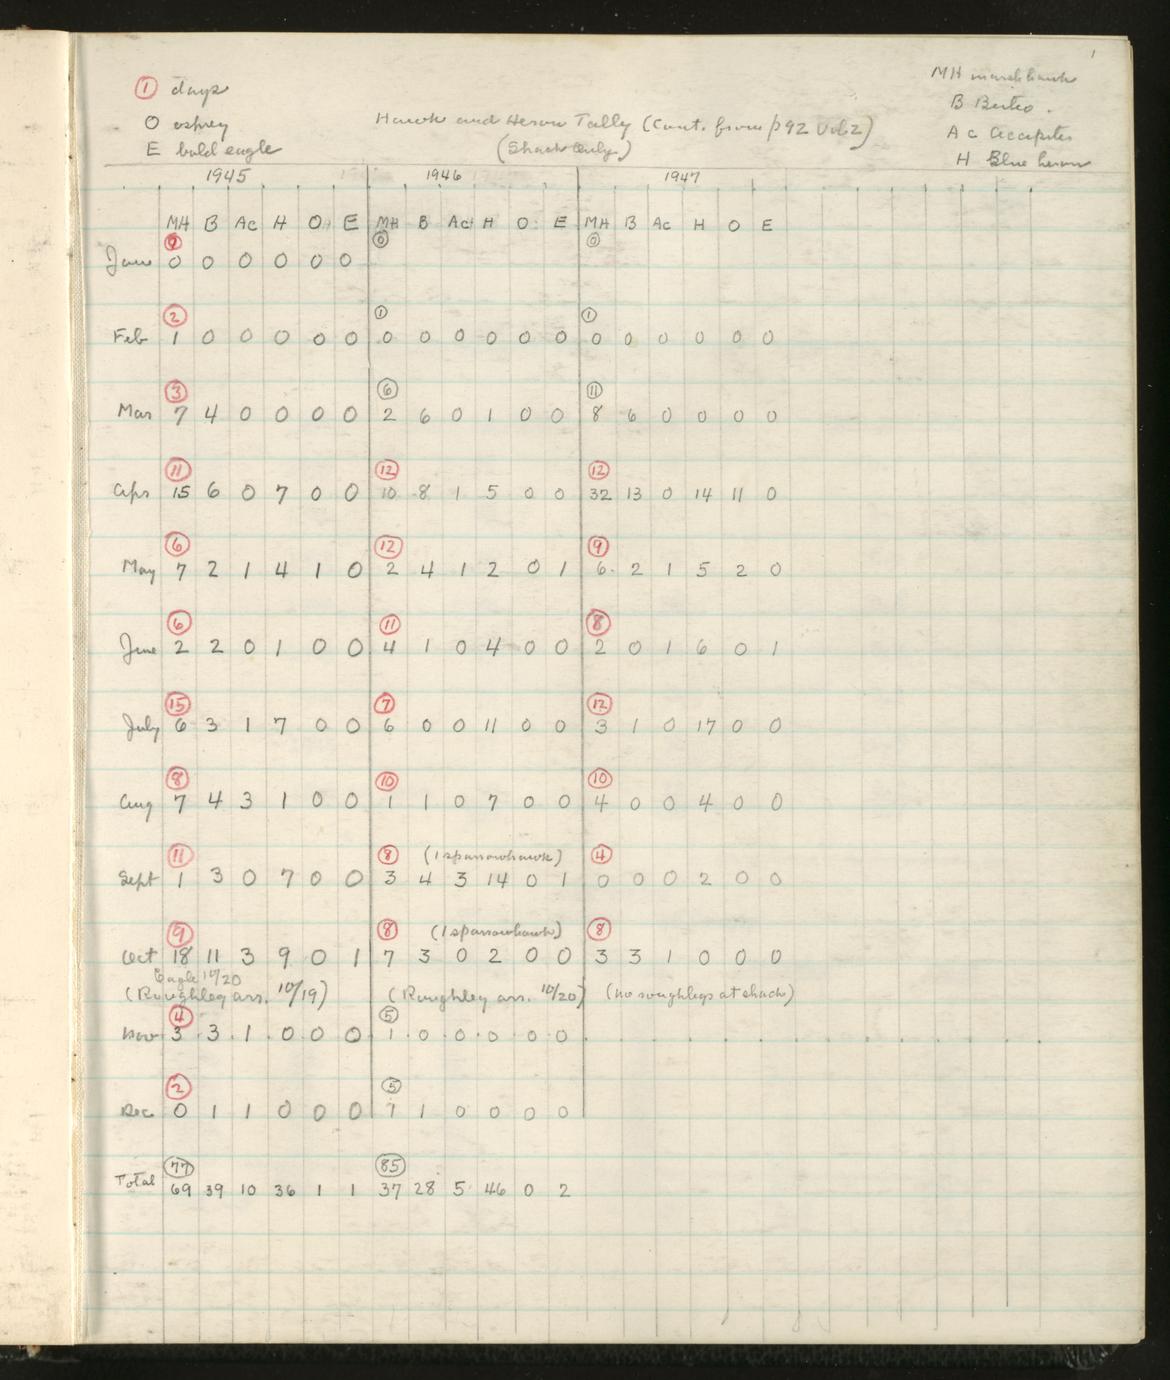 1
① days
O osprey
E bald eagle
MH marsh hawk
B Buteo .
Ac accipiter
H Blue heron
Hawk and Heron Tally (Cont. from p92 Vol 2)
(Shack Only)
1945 1946 1947
MH B Ac H O E MH B Ac H O E MH B Ac H O E
⓪ ⓪
0 0 0 0 0 0
② ① ①
Feb 1 0 0 0 0 0 0 0 0 0 0 0 0 0 0 0 0 0
③ ⑥ ⑪
Mar 7 4 0 0 0 0 2 6 0 1 0 0 8 6 0 0 0 0
⑪ ⑫ ⑫
Apr 15 6 0 7 0 0 10 8 1 5 0 0 32 13 0 14 11 0
⑥ ⑫ ⑨
May 7 2 1 4 1 0 2 4 1 2 0 1 6 2 1 5 2 0
⑥ ⑪ ⑧
June 2 2 0 1 0 0 4 1 0 4 0 0 2 0 1 6 0 1
⑮ ⑦ ⑫
July 6 3 1 7 0 0 6 0 0 11 0 0 3 1 0 17 0 0
⑧ ⑩ ⑩
Aug 7 4 3 1 0 0 1 1 0 7 0 0 4 0 0 4 0 0
⑪ ⑧ (1 sparrowhawk) ④
Sept 1 3 0 7 0 0 3 4 3 14 0 1 0 0 0 2 0 0
⑨ ⑧ (1 sparrowhawk) ⑧
Oct 18 11 3 9 0 1 7 3 0 2 0 0 3 3 1 0 0 0
Eagle 10/20
(Roughleg arr. 10/19) (Roughleg arr. 10/20) (no roughlegs at shack)
④ ⑤
Nov 3 3 1 0 0 0 1 0 0 0 0 0
② ⑤
Dec 0 1 1 0 0 0 1 1 0 0 0 0
(77) (85)
Total 69 39 10 36 1 1 37 28 5 46 0 2